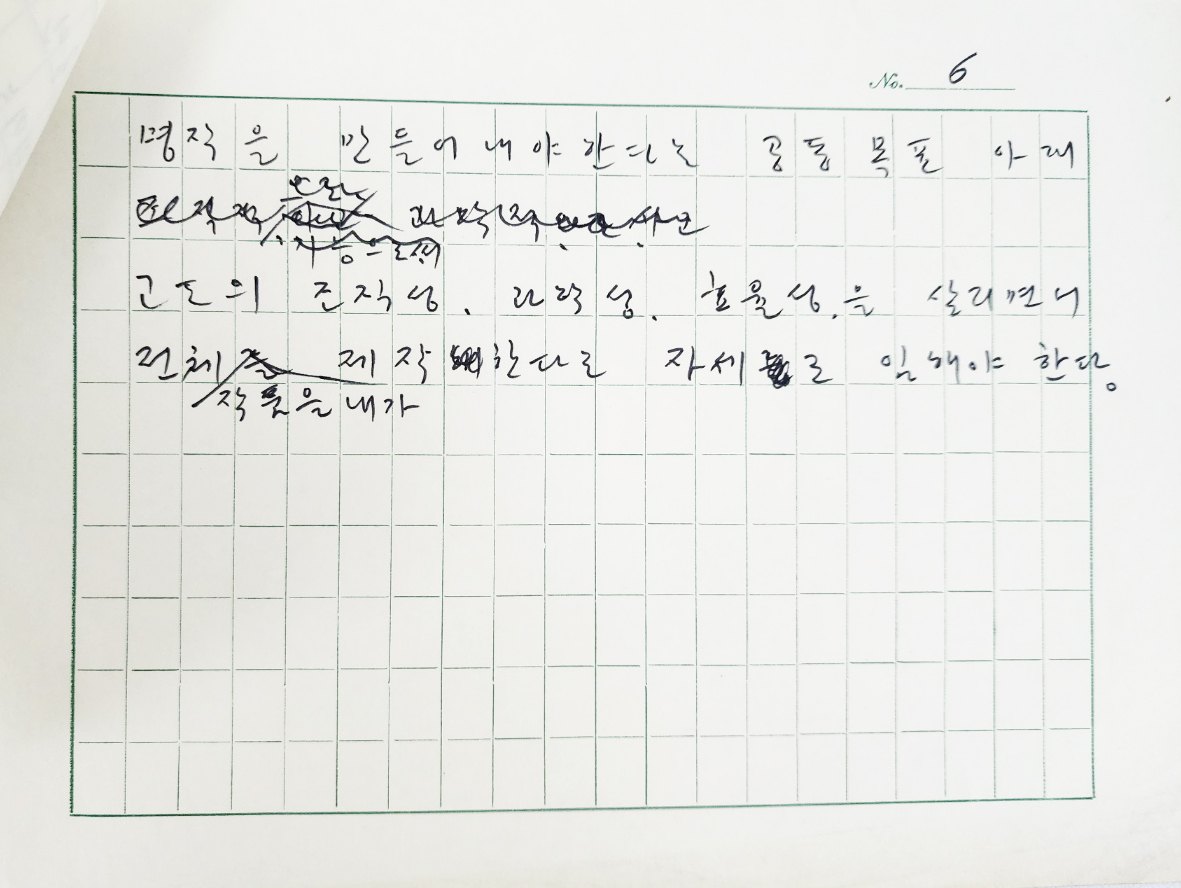 No. 6
명작을 만들어내야한다는 공동목표 아래
고도의 조직성, 과학성, 효율성,을 살리면서
전체를 제작한다로 자세로 임해야 한다.
작품을 내가